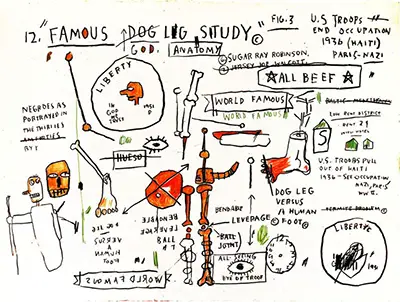 12. "FAMOUS DOG LEG STUDY" ©
GOD.
ANATOMY
FIG.3
U.S TROOPS
END OCCUPATION
1936 (HAITI)
PARIS-NAZI
SUGAR RAY ROBINSON,
JERSEY JOE WALCOTT.
☆ALL BEEF☆
LIBERTY
IN
GOD
TRUST
1951
NEGROES AS
PORTRAYED IN
THE THIRTIES
BY:
HUESO
WORLD FAMOUS
WORLD FAMOUS
LOW RENT DISTRICT
RENT 2$
S
U.S. TROOPS PULL
OUT OF HAITI
1936
NAZI, PARIS
WW II.
DOG LEG
VERSUS
A HUMAN
FOOT©
BENDABLE
LEVERAGE
BALL
JOINT
BENDABLE
LEVERAGE
BALL
DOG LEG
VERSUS
HUMAN A
FOOT
WORLD FAMOUS
ALL SEEING
EYE OF TROOP
LIBERTY